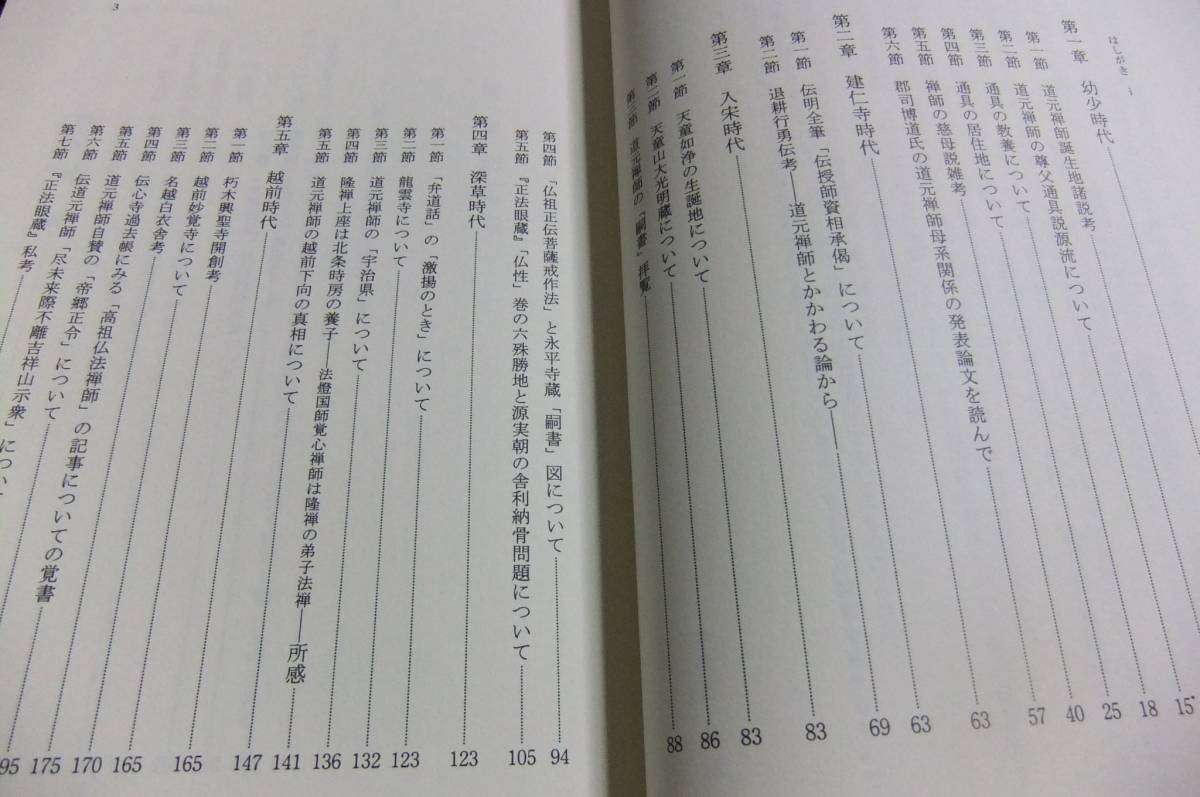 はしがき i
第一章 幼少時代
第一節 道元禅師誕生地諸説考
第二節 道元禅師の尊父通具説源流について 15
第三節 通具の教養について 18
第四節 通具の居住地について 25
第五節 禅師の慈母説雑考 40
第六節 郡司博道氏の道元禅師母系関係の発表論文を読んで 57
第二章 建仁寺時代 63
第一節 伝明全筆「伝授師資相承偈」について 63
第二節 退耕行勇伝考――道元禅師とかかわる論から―― 69
第三章 入宋時代 83
第一節 天童如浄の生誕地について 83
第二節 天童山大光明蔵について 86
第三節 道元禅師の「嗣書」拝覧 88
3
第四節 「仏祖正伝菩薩戒作法」と永平寺蔵「嗣書」図について 94
第五節 『正法眼蔵』「仏性」巻の六殊勝地と源実朝の舎利納骨問題について 105
第四章 深草時代 123
第一節 「弁道話」の「激揚のとき」について 123
第二節 龍雲寺について 132
第三節 道元禅師の「宇治県」について 136
第四節 隆禅上座は北条時房の養子――法燈国師覚心禅師は隆禅の弟子法禅――所感 141
第五節 道元禅師の越前下向の真相について 147
第五章 越前時代 165
第一節 朽木興聖寺開創考 165
第二節 越前妙覚寺について 170
第三節 名越白衣舎考 175
第四節 伝心寺過去帳にみる「高祖仏法禅師」の記事についての覚書 95
第五節 道元禅師自賛の「帝郷正令」について
第六節 伝道元禅師「尽未来際不離吉祥山示衆」につい
第七節 『正法眼蔵』私考